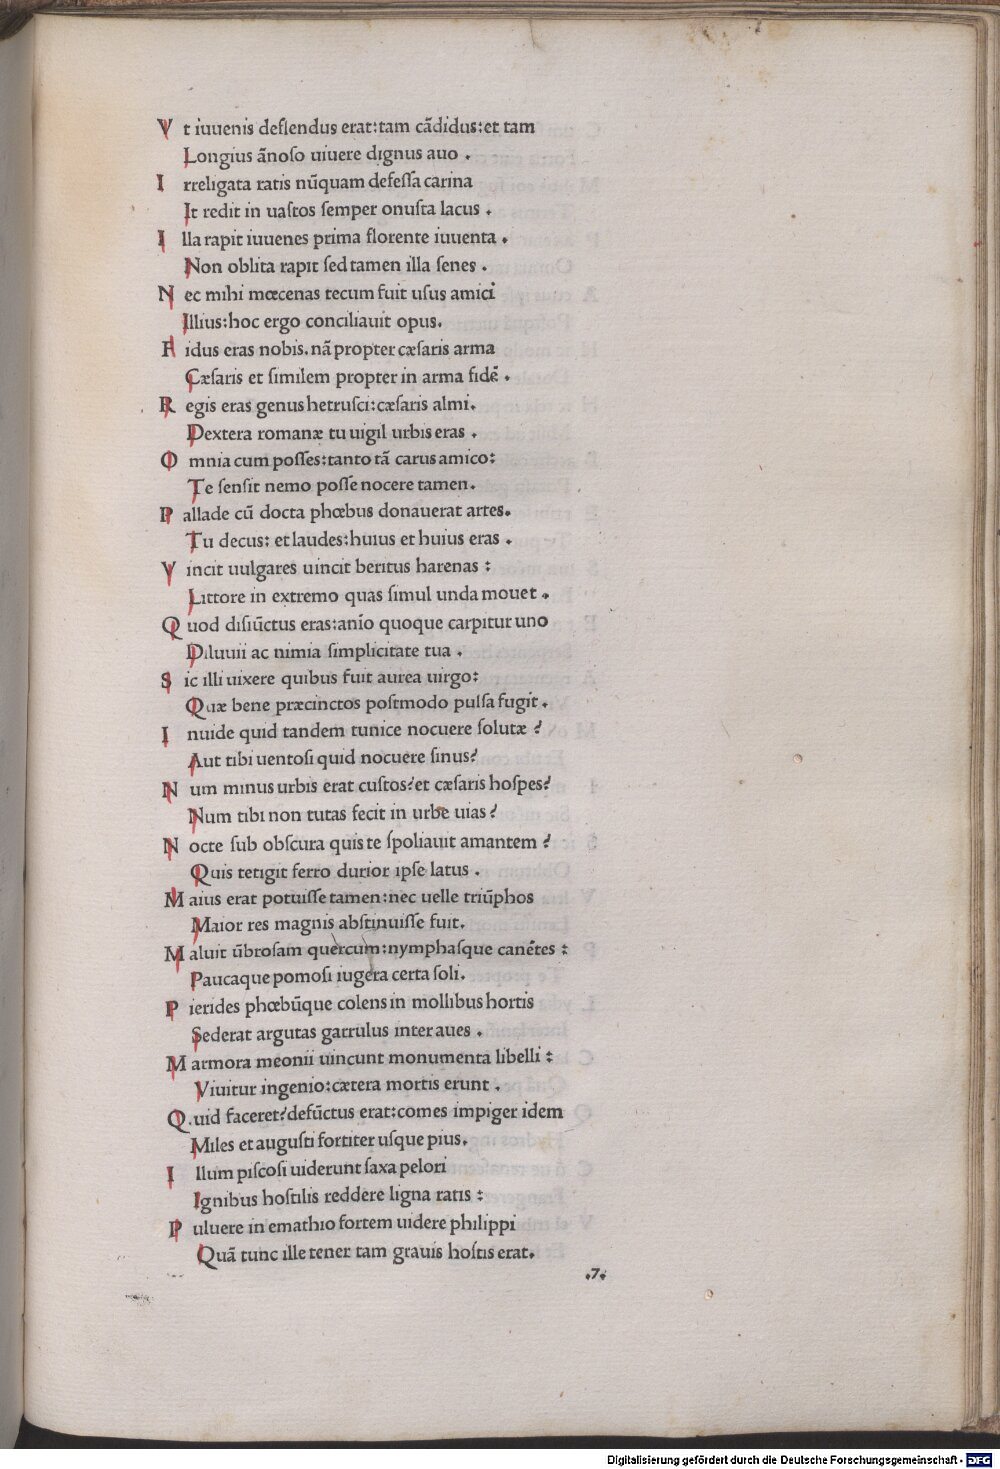 V t iuuenis deflendus erat:tam cãdidus:et tam
Longius ãnoso uiuere dignus auo .
I rreligata ratis nũquam defeſſa carina
It redit in uaſtos ſemper onuſta lacus .
I lla rapit iuuenes prima florente iuuenta .
Non oblita rapit ſed tamen illa ſenes .
N ec mihi mœcenas tecum fuit uſus amici
Illius:hoc ergo conciliauit opus.
F idus eras nobis. nã propter cæſaris arma
Cæſaris et ſimilem propter in arma fidẽ .
R egis eras genus hetruſci:cæſaris almi.
Dextera romanæ tu uigil urbis eras .
O mnia cum poſſes:tanto tã carus amico:
Te ſenſit nemo poſſe nocere tamen.
P allade cũ docta phœbus donauerat artes.
Tu decus: et laudes:huius et huius eras .
V incit uulgares uincit beritus harenas :
Littore in extremo quas ſimul unda mouet .
Q uod diſiũctus eras:anĩo quoque carpitur uno
Diluuii ac nimia ſimplicitate tua .
S ic illi uixere quibus fuit aurea uirgo:
Quæ bene præcinctos poſtmodo pulſa fugit.
I nuide quid tandem tunice nocuere ſolutæ ?
Aut tibi uentoſi quid nocuere ſinus?
N um minus urbis erat cuſtos?et cæſaris hoſpes?
Num tibi non tutas fecit in urbe uias?
N octe ſub obſcura quis te ſpoliauit amantem ?
Quis tetigit ferro durior ipſe latus .
M aius erat potuiſſe tamen:nec uelle triũphos
Maior res magnis abſtinuiſſe fuit.
M aluit ũbroſam quercum:nymphaſque canẽtes :
Paucaque pomoſi iugera certa ſoli.
P ierides phœbũque colens in mollibus hortis
Sederat argutas garrulus inter aues .
M armora meonii uincunt monumenta libelli :
Viuitur ingenio:cætera mortis erunt .
Q uid faceret?defũctus erat:comes impiger idem
Miles et auguſti fortiter uſque pius.
I llum piſcoſi uiderunt ſaxa pelori
Ignibus hoſtilis reddere ligna ratis :
P uluere in emathio fortem uidere philippi
Quã tunc ille tener tam grauis hoſtis erat.
.7.
Digitalisierung gefördert durch die Deutsche Forschungsgemeinschaft - DFG